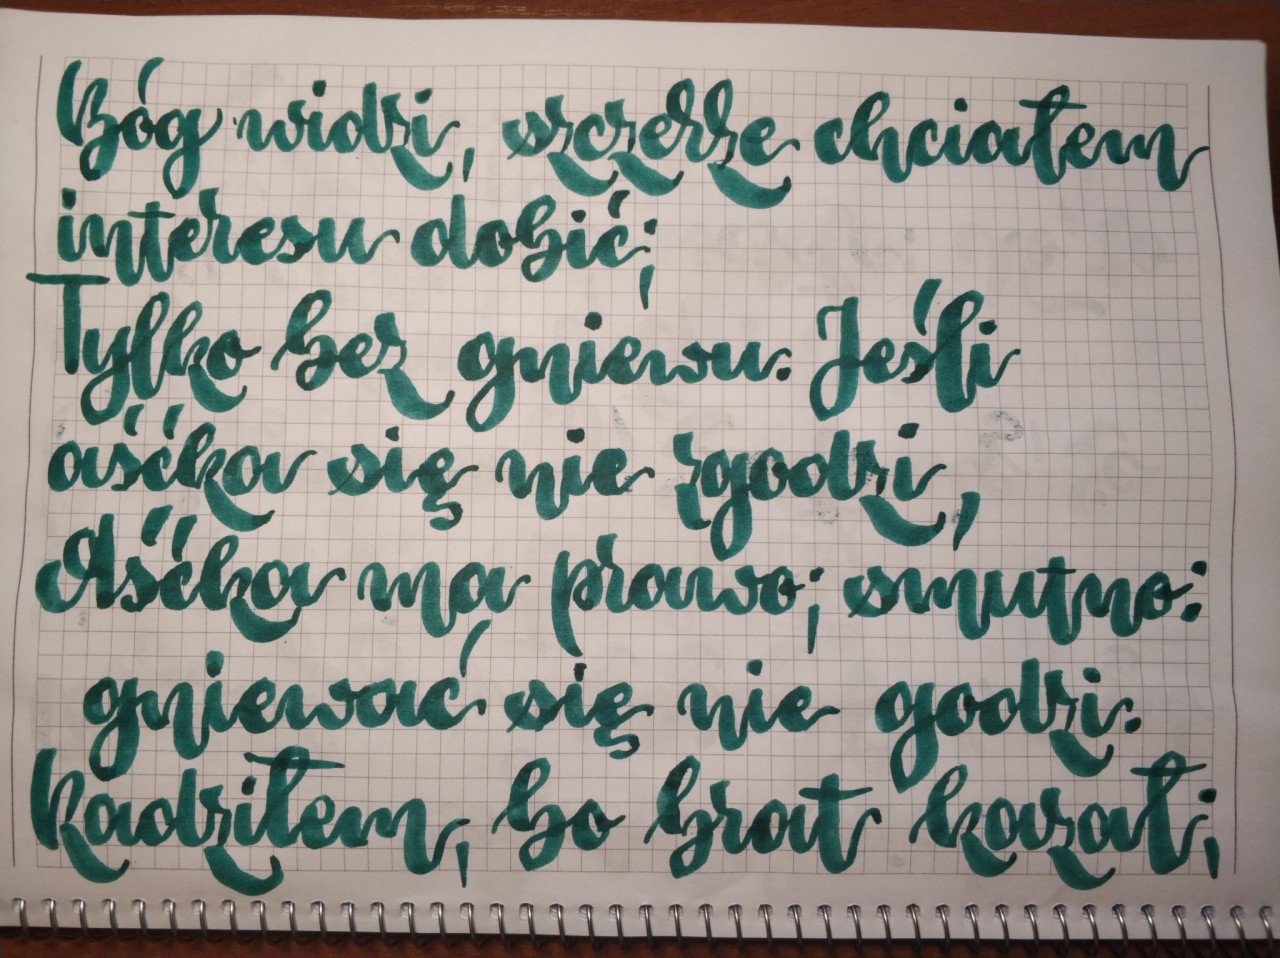 Bóg widzi, szczerze chciałem
interesu dobić;
Tylko bez gniewu. Jeśli
aśćka się nie zgodzi,
Aśćka ma prawo; smutno:
gniewać się nie godzi.
Radziłem, bo brat kazał;